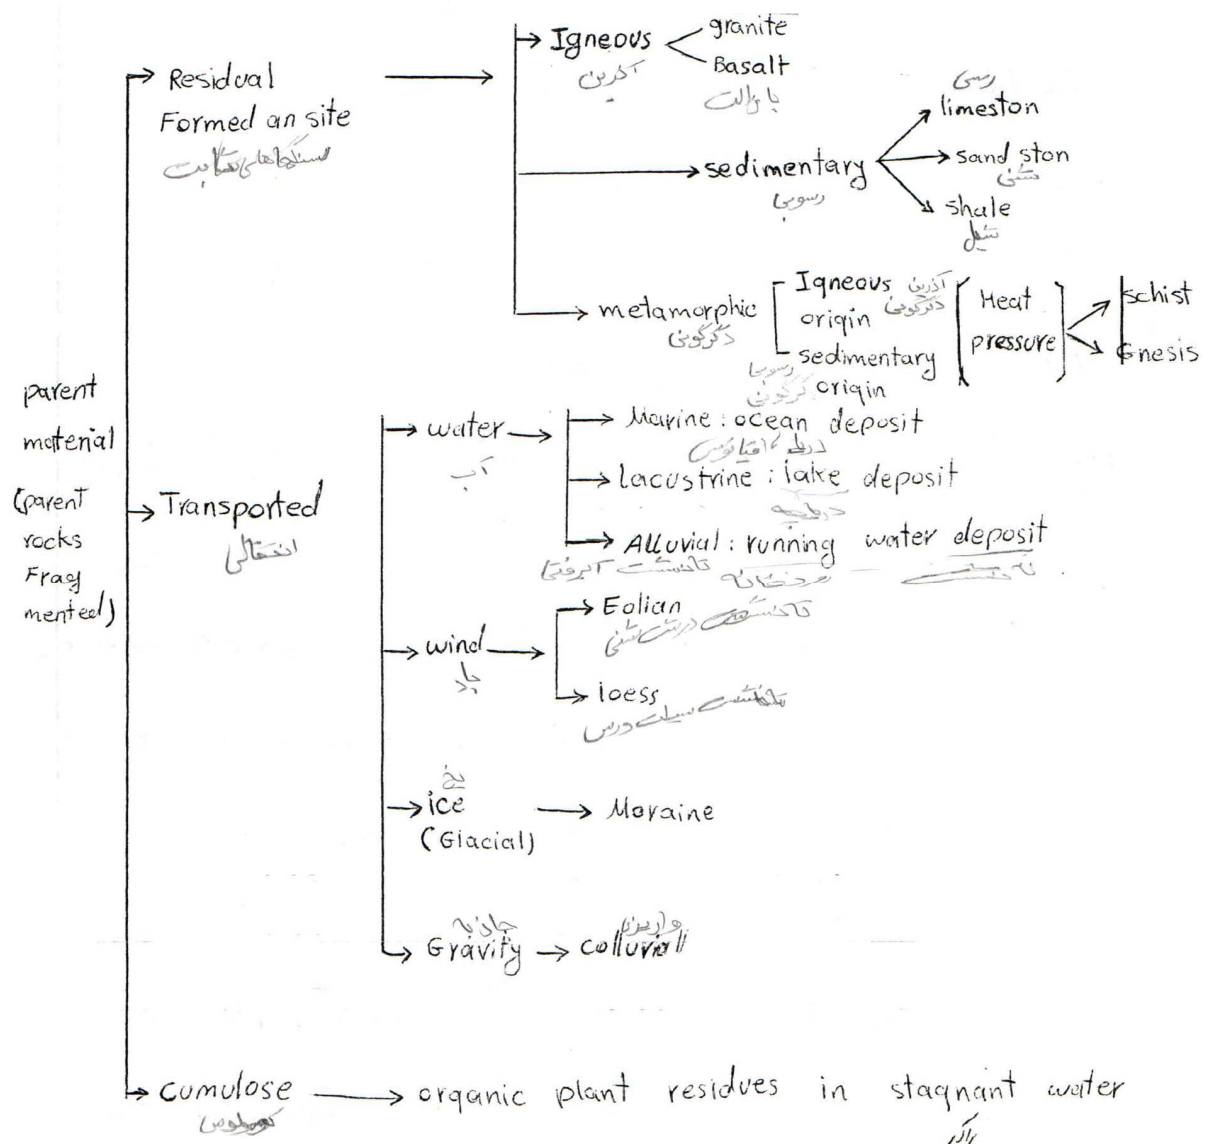 parent
material
(parent
rocks
Frag
mented)
Residual
Formed on site
Igneous
آذرین
granite
Basalt
بازالت
sedimentary
رسوبی
رسی
limeston
sand ston
شنی
shale
شیل
metamorphic
دگرگونی
Igneous آذرین
origin دگرگونی
sedimentary
رسوبی
origin
دگرگونی
Heat
pressure
schist
Gnesis
Transported
انتقالی
water
آب
Marine : ocean deposit
دریا، اقیانوس
Lacustrine : lake deposit
دریاچه
Alluvial : running water deposit
ته نشست آبرفتی
رودخانه
ته نشست
wind
باد
Eolian
loess
یخ
ice
(Glacial)
Moraine
جاذبه
Gravity
colluvial
Cumulose
کومولوس
organic plant residues in stagnant water
راکد